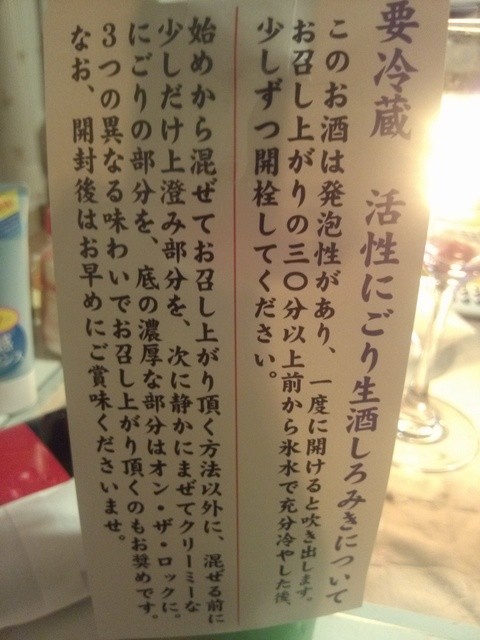 要冷蔵 活性にごり生酒しろみきについて
このお酒は発泡性があり、一度に開けると吹き出します。
お召し上がりの三〇分以上前から氷水で充分冷やした後、
少しずつ開栓してください。
始めから混ぜてお召し上がり頂く方法以外に、混ぜる前に
少しだけ上澄み部分を、次に静かにまぜてクリーミーな
にごりの部分を、底の濃厚な部分はオン・ザ・ロックに。
3つの異なる味わいでお召し上がり頂くのもお奨めです。
なお、開封後はお早めにご賞味くださいませ。